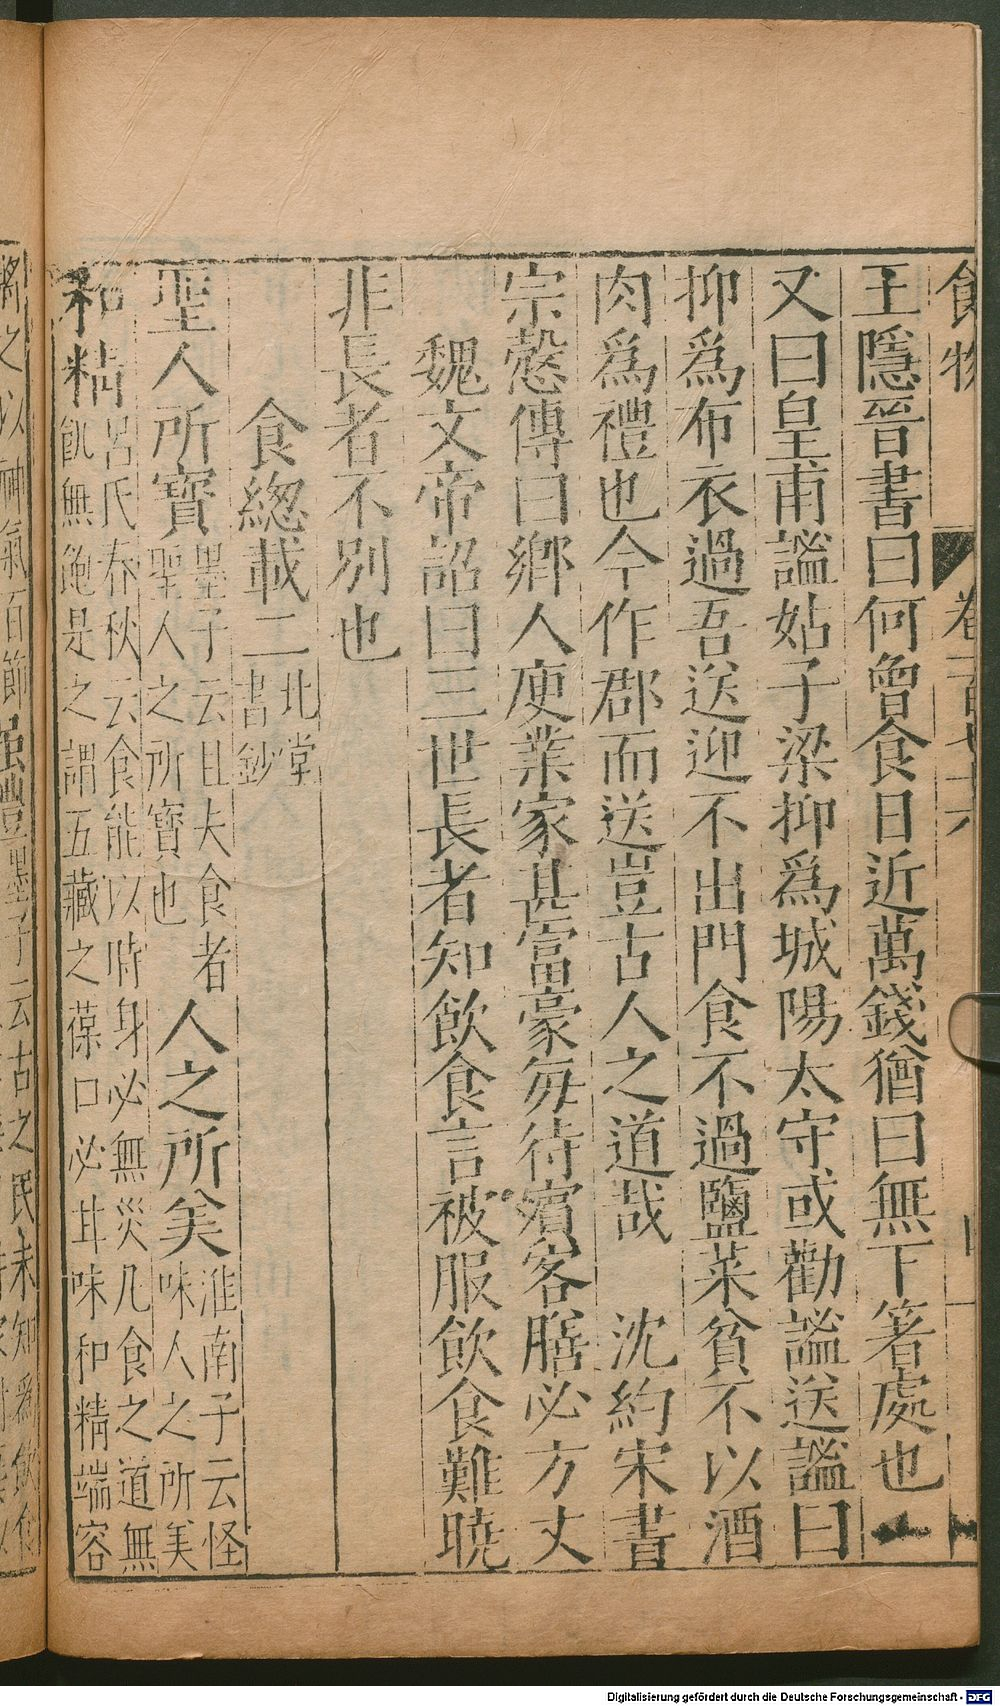 食物
卷一百七十六
王隱晉書曰何曾食日近萬錢猶曰無下箸處也
又曰皇甫謐姑子梁抑爲城陽太守或勸謐送謐曰
抑爲布衣過吾送迎不出門食不過鹽菜貧不以酒
肉爲禮也今作郡而送豈古人之道哉 沈約宋書
宗慤傳曰鄉人庾業家甚富豪每待賓客膳必方丈
魏文帝詔曰三世長者知飲食言被服飲食難曉
非長者不別也
食總載二 北堂書鈔
聖人所寳 墨子云且夫食者聖人之所寳也 人之所美 淮南子云怪味人之所美
和精 呂氏春秋云食能以時身必無災凡食之道無飢無飽是之謂五藏之葆口必甘味和精端容
將之以神氣百節虽豊 墨子云古之民未知爲飲食
Digitalisierung gefördert durch die Deutsche Forschungsgemeinschaft - DFG